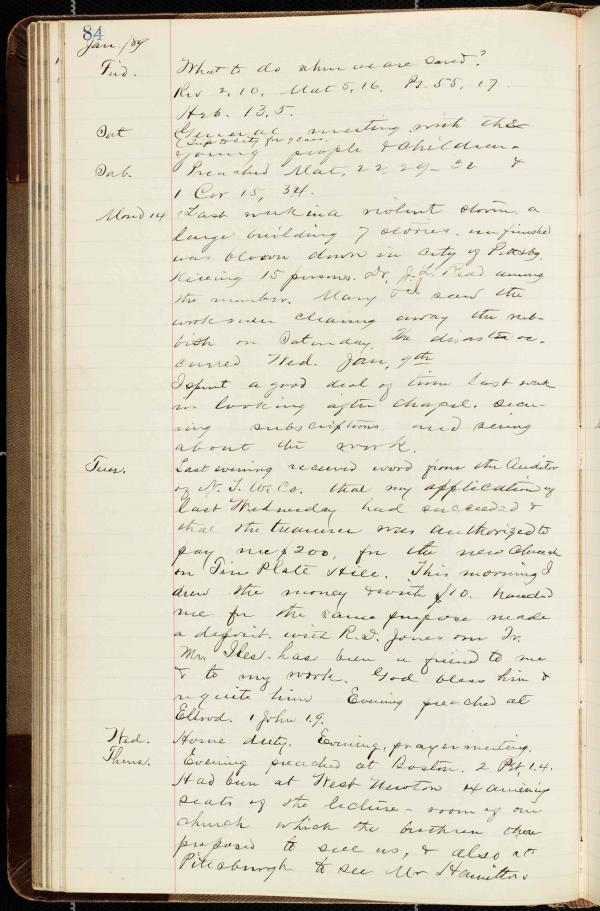 84
Jan. /89
Frid. What to do when we are saved?
Rev 2, 10, Mat 5, 16, Ps. 55, 17.
Heb. 13, 5.
Sat General meeting with the
young people & children.
Sab. Preached Mat, 22, 29-32 &
1 Cor 15, 34.
Mond 14 Last week in a violent storm a
large building 7 stories unfinished
was blown down in City of Pittsbg,
Killing 15 persons. Dr, J. L. Read among
the number. Mary & I saw the
workmen clearing away the rub-
bish on Saturday. The disaster oc-
curred Wed. Jan, 9th
I spent a good deal of time last week
in looking after chapel. secu-
ring subscriptions and seeing
about the work.
Tues. Last evening received word from the Auditor
of N. T. W. Co. that my application of
last Wednesday had succeeded &
that the treasurer was authorized to
pay me $200, for the new church
on Tin Plate Hill. This morning I
drew the money & with $10. handed
me for the same purpose made
a deposit with R. D. Jones our Tr.
Mr. Iles. has been a friend to me
& to my work. God bless him &
requite him Evening preached at
Ellrod. 1 John 1.9.
Wed. Home duty. Evening, prayer meeting.
Thurs. Evening preached at Boston. 2 Pet, 1.4.
Had been at West Newton examining
seats of the lecture-room of our
church which the brethren there
proposed to sell us, & also at
Pittsburgh to see Mr Hamilton